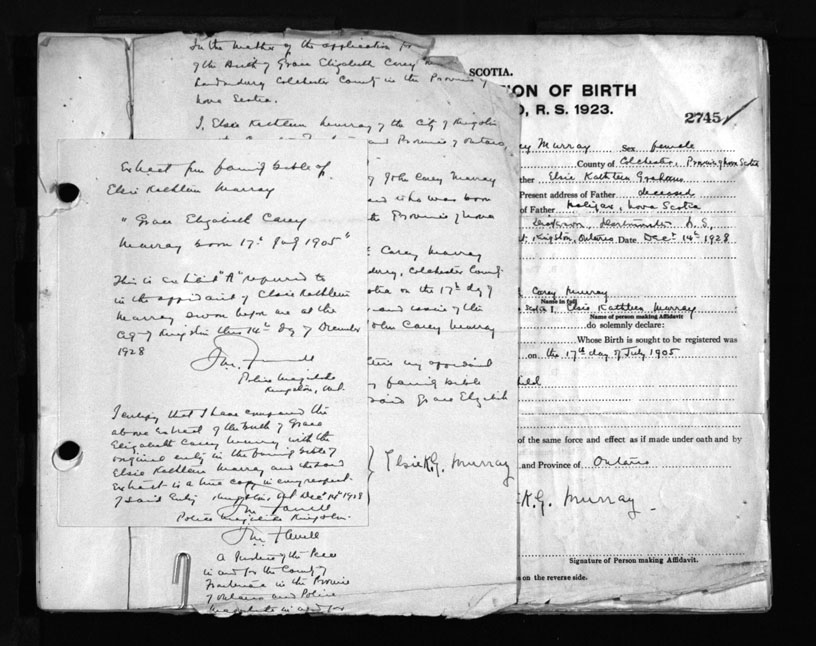 In the matter of the application for
of the Birth of Grace Elizabeth Carey
Londonderry Colchester County in the Province of
Nova Scotia.
I, Elsie Kathleen Murray of the City of Kingston
and Province of Ontario,
of John Carey Murray
who was born
the Province of Nova
Carey Murray
Colchester County
on the 17th day of
and issue of the
John Carey Murray
my affidavit
family bible
said Grace Elizabeth
Elsie K.G. Murray
Extract from family bible of
Elsie Kathleen Murray
"Grace Elizabeth Carey
Murray born 17th July 1905"
This is Exhibit "A" referred to
in the affidavit of Elsie Kathleen
Murray sworn before me at the
City of Kingston this 14th day of December
1928
Police Magistrate
Kingston, Ont.
I certify that I have compared the
above extract of the birth of Grace
Elizabeth Carey Murray with the
original entry in the family bible of
Elsie Kathleen Murray and the said
Extract is a true copy in every respect
of said Entry Kingston, Ont Dec 14th 1928
Police Magistrate Kingston
A Justice of the Peace
in and for the County of
Frontenac in the Province
of Ontario and Police
Magistrate in and for
SCOTIA.
ION OF BIRTH
, R. S. 1923.
2745
Murray Sex female
County of Colchester, Province of Nova Scotia
ther Elsie Kathleen Graham
Present address of Father deceased
of Father Halifax, Nova Scotia
N.S,
Kingston, Ontario Date Dec 14th 1928
Carey Murray
Name in full
I, Elsie Kathleen Murray
Name of person making Affidavit
do solemnly declare:
Whose Birth is sought to be registered was
on the 17th day of July 1905
of the same force and effect as if made under oath and by
and Province of Ontario
K.G. Murray
Signature of Person making Affidavit.
s on the reverse side.